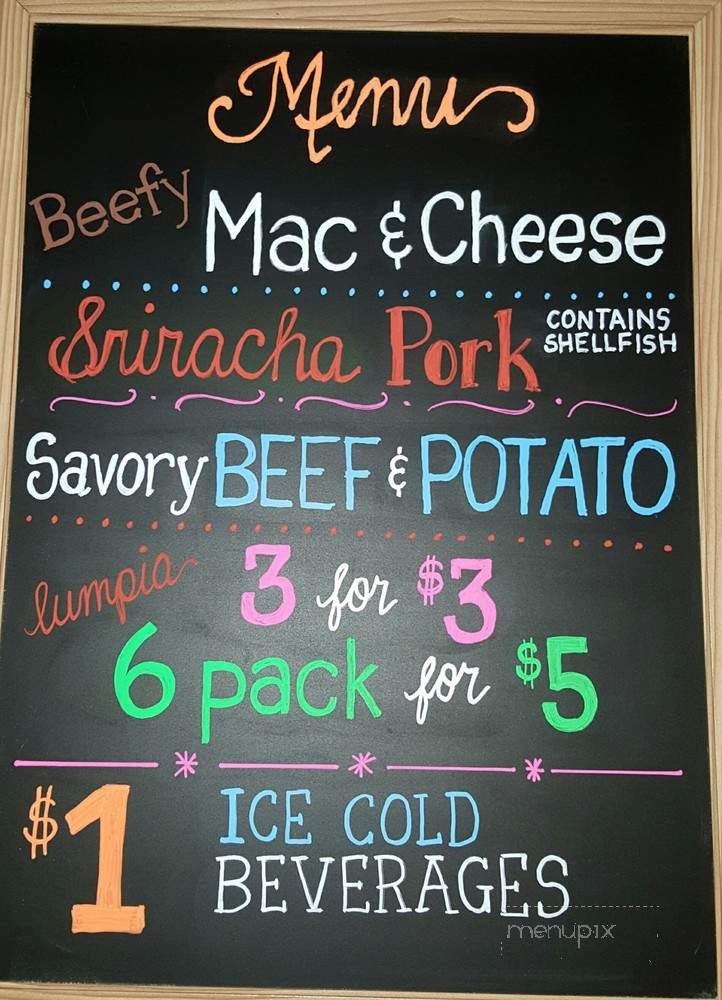 Menu
Beefy Mac & Cheese
Sriracha Pork CONTAINS
SHELLFISH
Savory BEEF & POTATO
lumpia 3 for $3
6 pack for $5
$1 ICE COLD
BEVERAGES
menupix